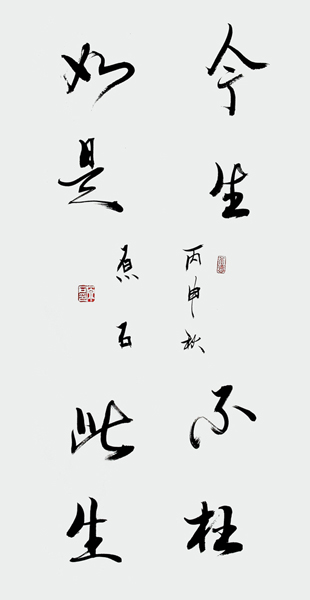 今生不枉
如是此生
丙申秋
点石